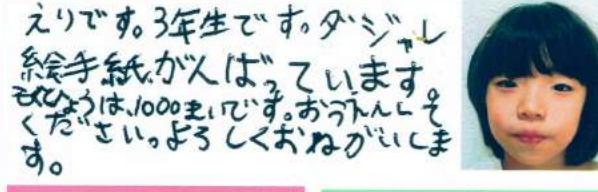 えりです。3年生です。ダジャレ
絵手紙、がんばっています。
もくひょうは、1000まいです。おうえんして
ください。よろしくおねがいしま
す。